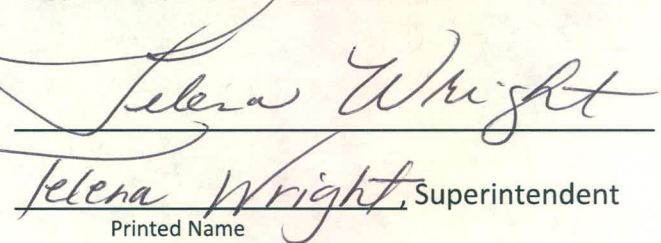 Telena Wright
Telena Wright, Superintendent
Printed Name